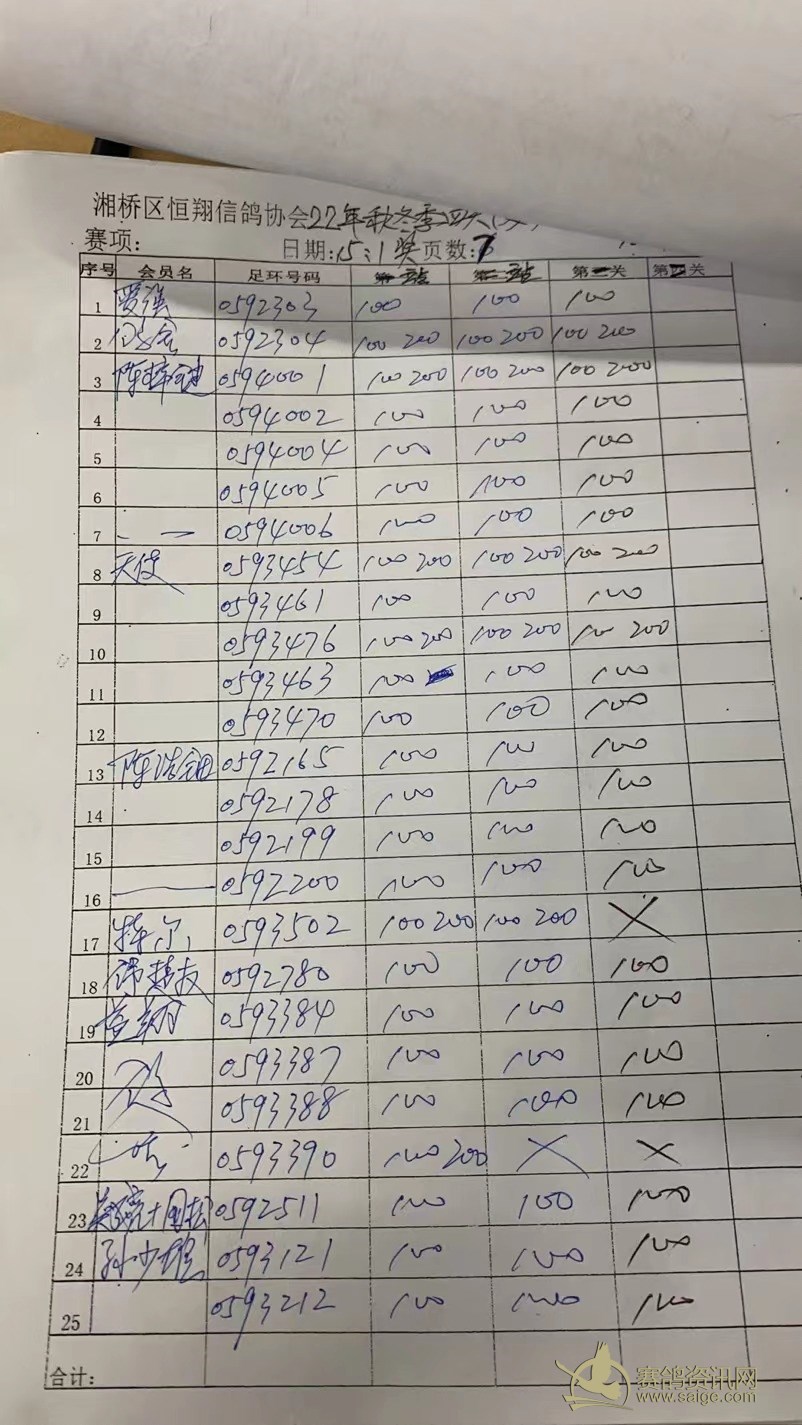 湘桥区恒翔信鸽协会22年秋冬季四关
赛项: 日期:15:1奖 页数:7
序号 会员名 足环号码 站 站 第三关 第四关
1 0592303 100 100 100
2 0592304 100 200 100 200 100 200
3 陈梓 0594001 100 200 100 200 100 200
4 0594002 100 100 100
5 0594004 100 100 100
6 0594005 100 100 100
7 0594006 100 100 100
8 天使 0593454 100 200 100 200 100 200
9 0593461 100 100 100
10 0593476 100 200 100 200 100 200
11 0593463 100 100 100
12 0593470 100 100 100
13 陈浩钿 0592165 100 100 100
14 0592178 100 100 100
15 0592199 100 100 100
16 0592200 100 100 100
17 0593502 100 200 100 200 ×
18 0592780 100 100 100
19 0593384 100 100 100
20 0593387 100 100 100
21 0593388 100 100 100
22 0593390 100 200 × ×
23 0592511 100 100 100
24 孙少雄 0593121 100 100 100
25 0593212 100 100 100
合计:
赛鸽资讯网
www.saige.com